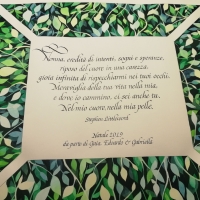 Nonna, eredità di intenti, sogni e speranze,
riposo del cuore in una carezza,
gioia infinita di rispecchiarmi nei tuoi occhi.
Meraviglia della tua vita nella mia,
e dove io cammino, ci sei anche tu.
Nel mio cuore, nella mia pelle.
Stephen
Natale 2019
da parte di Gaia, Edoardo & Gabriella